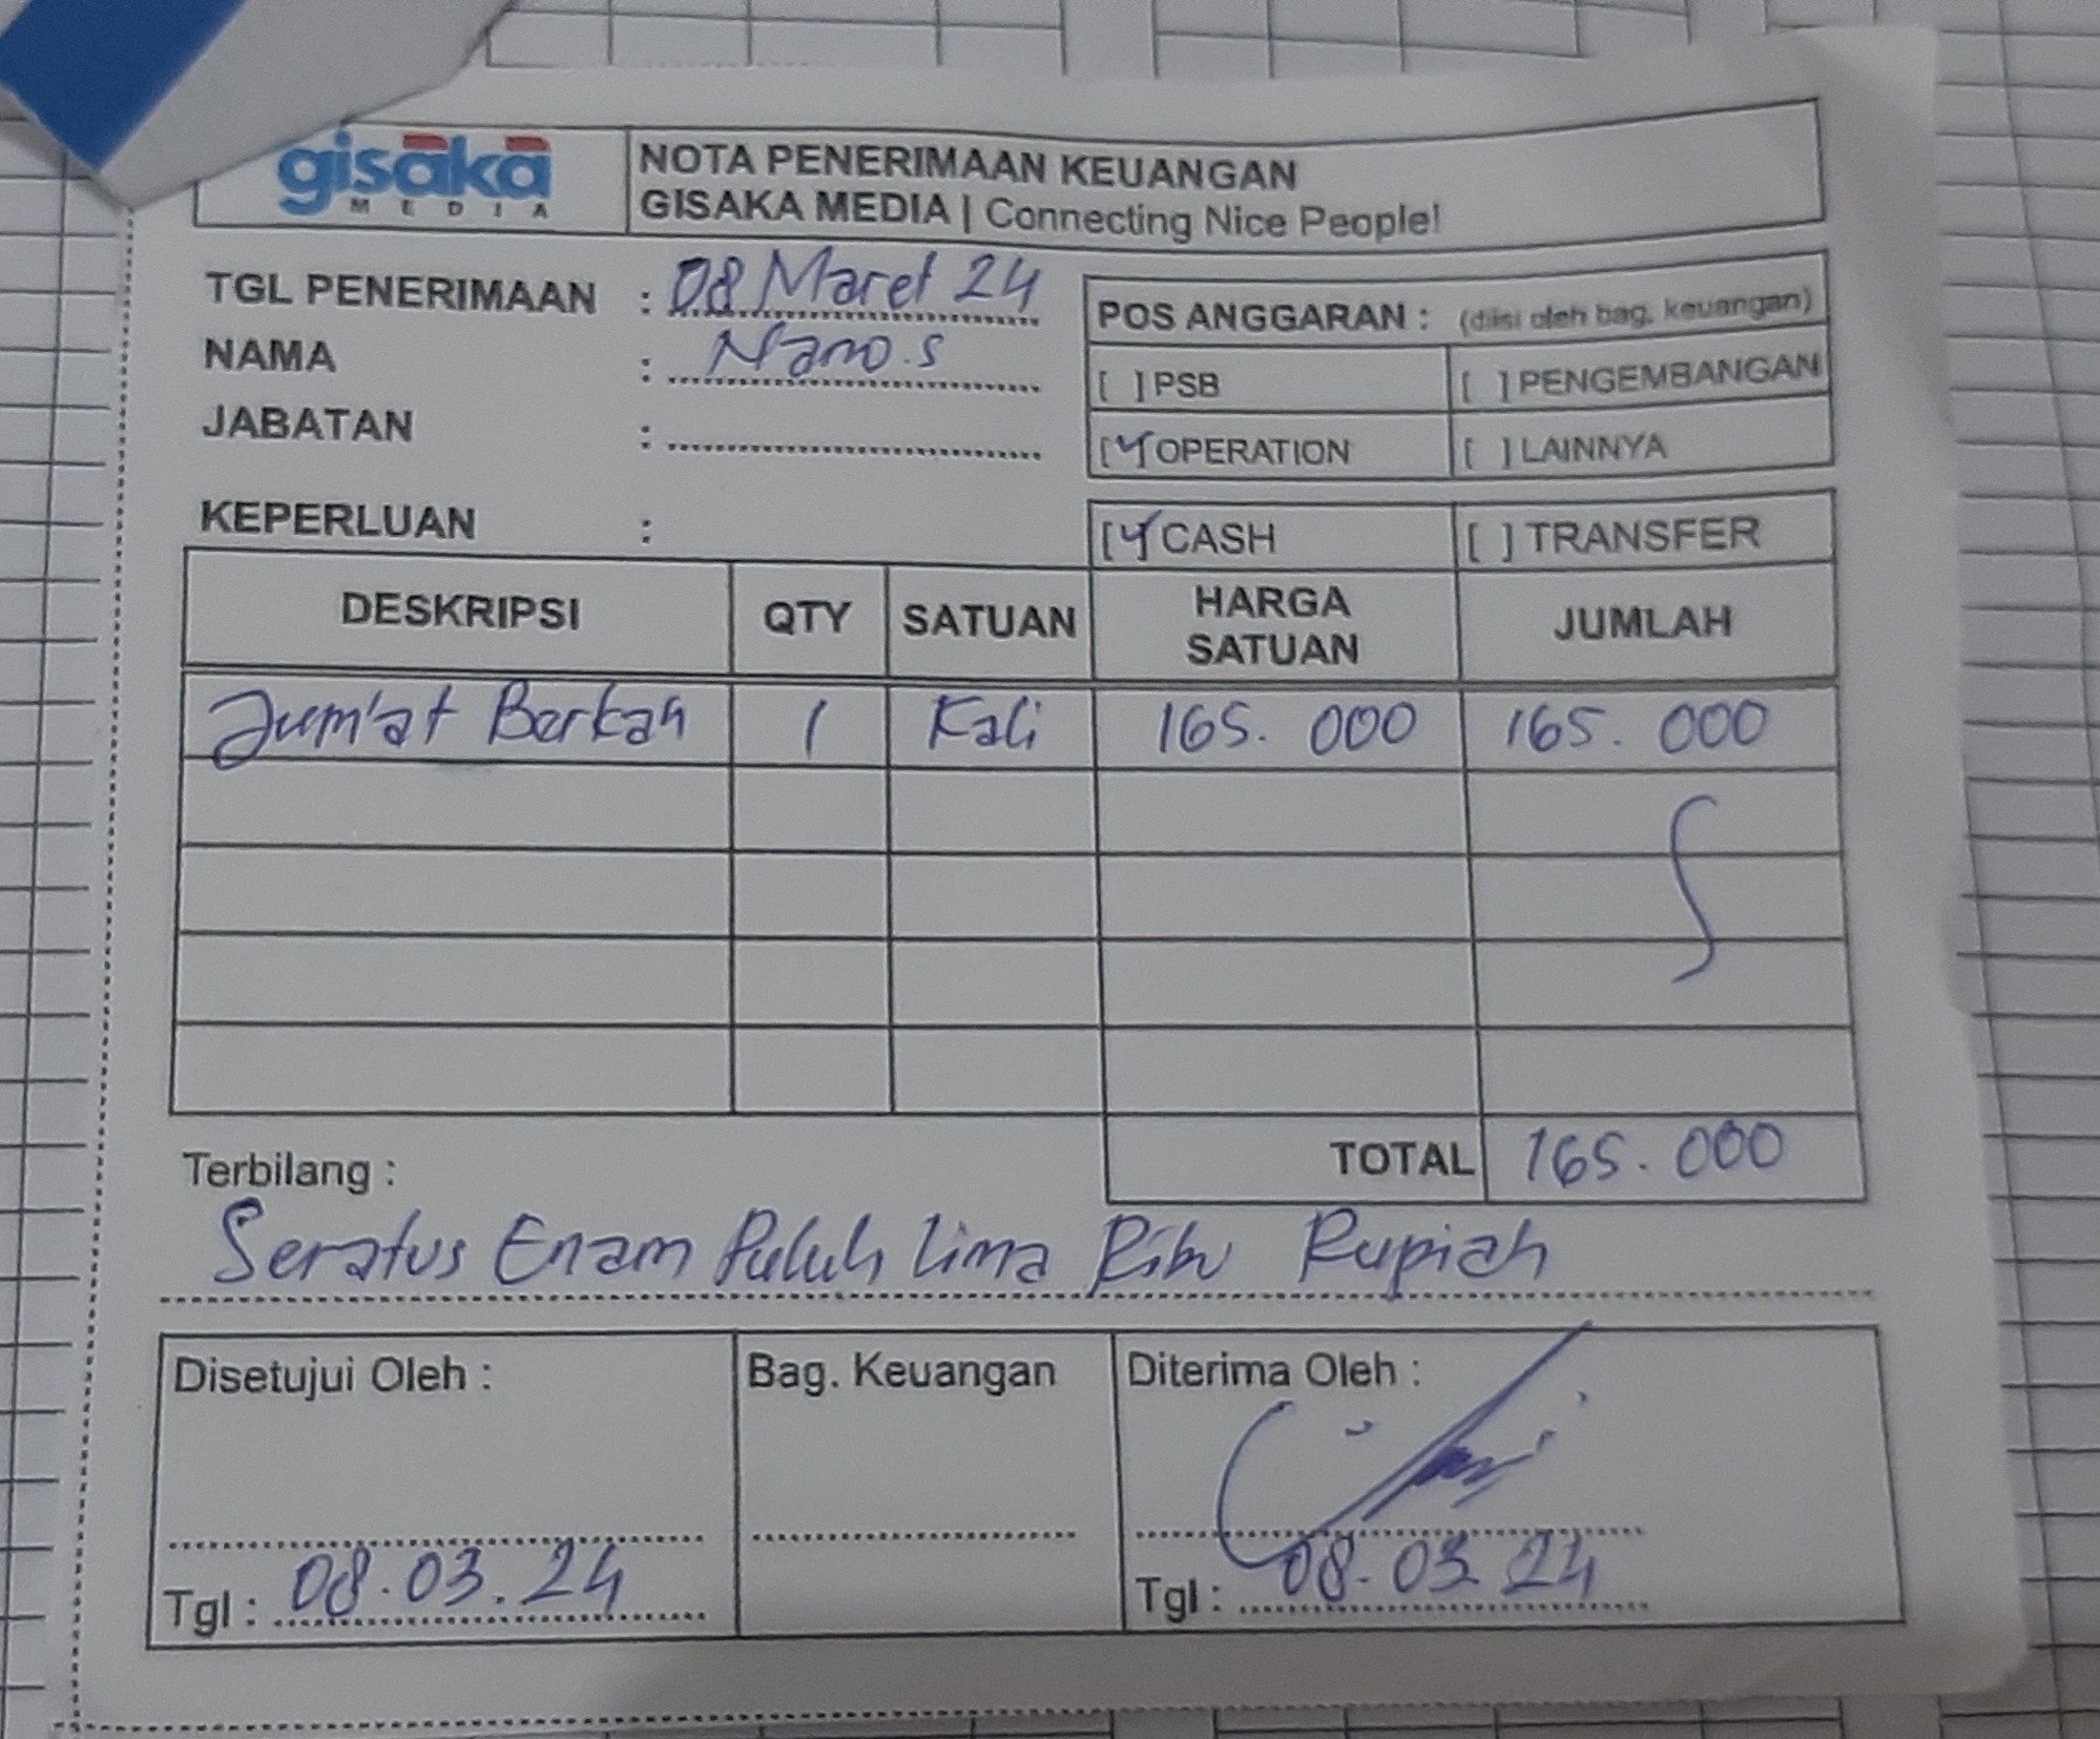 gisaka
MEDIA
NOTA PENERIMAAN KEUANGAN
GISAKA MEDIA | Connecting Nice People!
TGL PENERIMAAN : 08 Maret 24
NAMA : Nano.S
JABATAN :
POS ANGGARAN : (diisi oleh bag. keuangan)
[ ] PSB [ ] PENGEMBANGAN
[✓] OPERATION [ ] LAINNYA
KEPERLUAN :
[✓] CASH [ ] TRANSFER
DESKRIPSI QTY SATUAN HARGA SATUAN JUMLAH
Jum'at Berkah 1 Kali 165.000 165.000
TOTAL 165.000
Terbilang :
Seratus Enam Puluh Lima Ribu Rupiah
Disetujui Oleh : Bag. Keuangan Diterima Oleh :
Tgl : 08.03.24 Tgl : 08.03.24